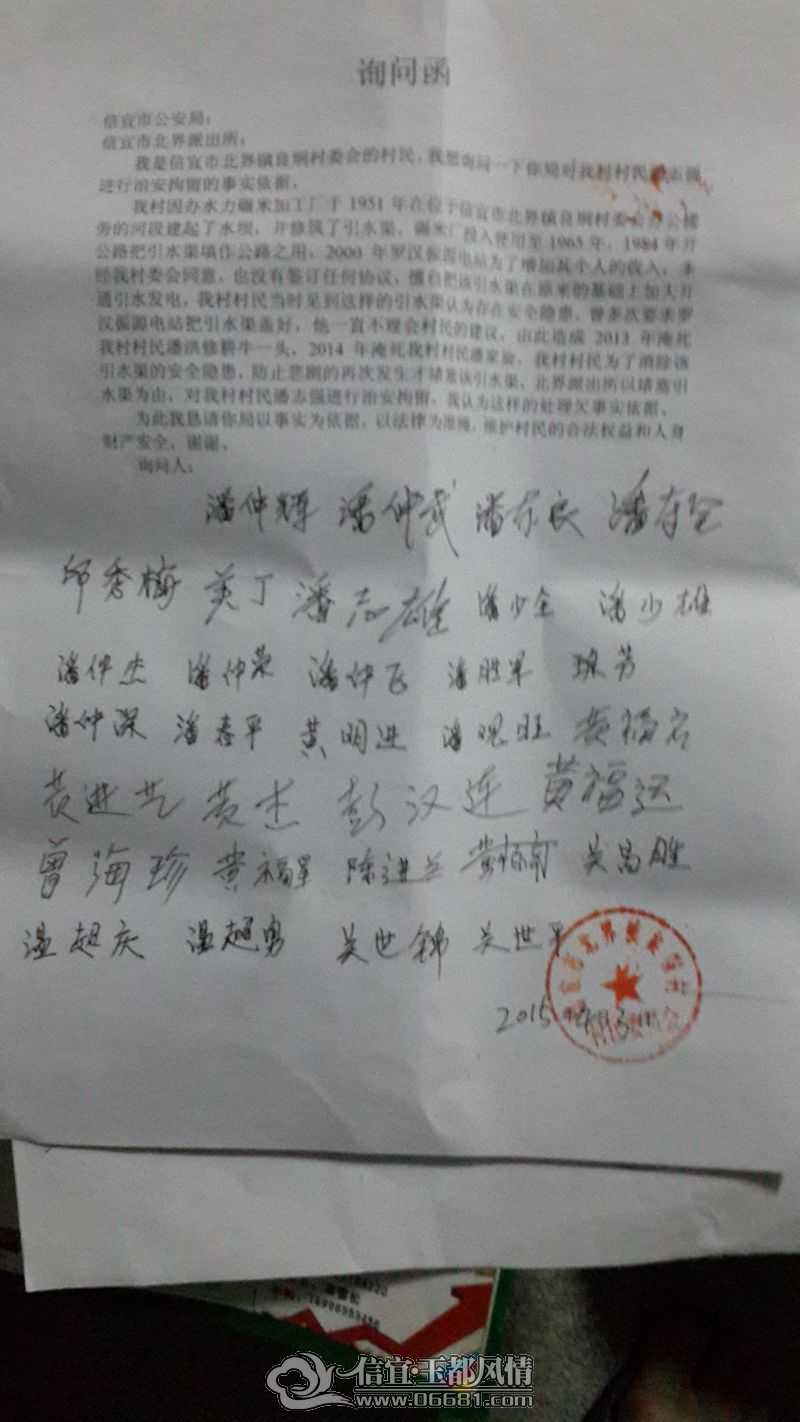 询问函
信宜市公安局:
信宜市北界派出所:
我是信宜市北界镇良垌村委会的村民,我想询问一下你局对我村村民潘志强
进行治安拘留的事实依据。
我村因办水力碾米加工厂于 1951 年在位于信宜市北界镇良垌村委会办公楼
旁的河段建起了水坝,并修筑了引水渠。碾米厂投入使用至 1965 年,1984 年开
公路把引水渠填作公路之用。2000 年罗汉振源电站为了增加其个人的收入,未
经我村委会同意,也没有签订任何协议,擅自把该引水渠在原来的基础上加大开
通引水发电,我村村民当时见到这样的引水渠认为存在安全隐患,曾多次要求罗
汉振源电站把引水渠盖好,他一直不理会村民的建议。由此造成 2013 年淹死
我村村民潘洪修耕牛一头,2014 年淹死我村村民潘家旋。我村村民为了消除该
引水渠的安全隐患,防止悲剧的再次发生才堵塞该引水渠。北界派出所以堵塞引
水渠为由,对我村村民潘志强进行治安拘留,我认为这样的处理欠事实依据。
为此我恳请你局以事实为依据,以法律为准绳,维护村民的合法权益和人身
财产安全。谢谢。
询问人:
潘仲辉 潘仲武 潘东良 潘存全
邱秀梅 美丁 潘志雄 潘少全 潘少雄
潘仲杰 潘仲荣 潘仲飞 潘胜军
潘仲深 潘春平 黄明进 潘观旺
黄进艺 黄杰 彭汉连 黄福运
曾海珍 黄福星 陈进兰 吴昌胜
温超庆 温超勇 吴世锦 吴世平
2015
信宜·玉都风情
www.06681.com